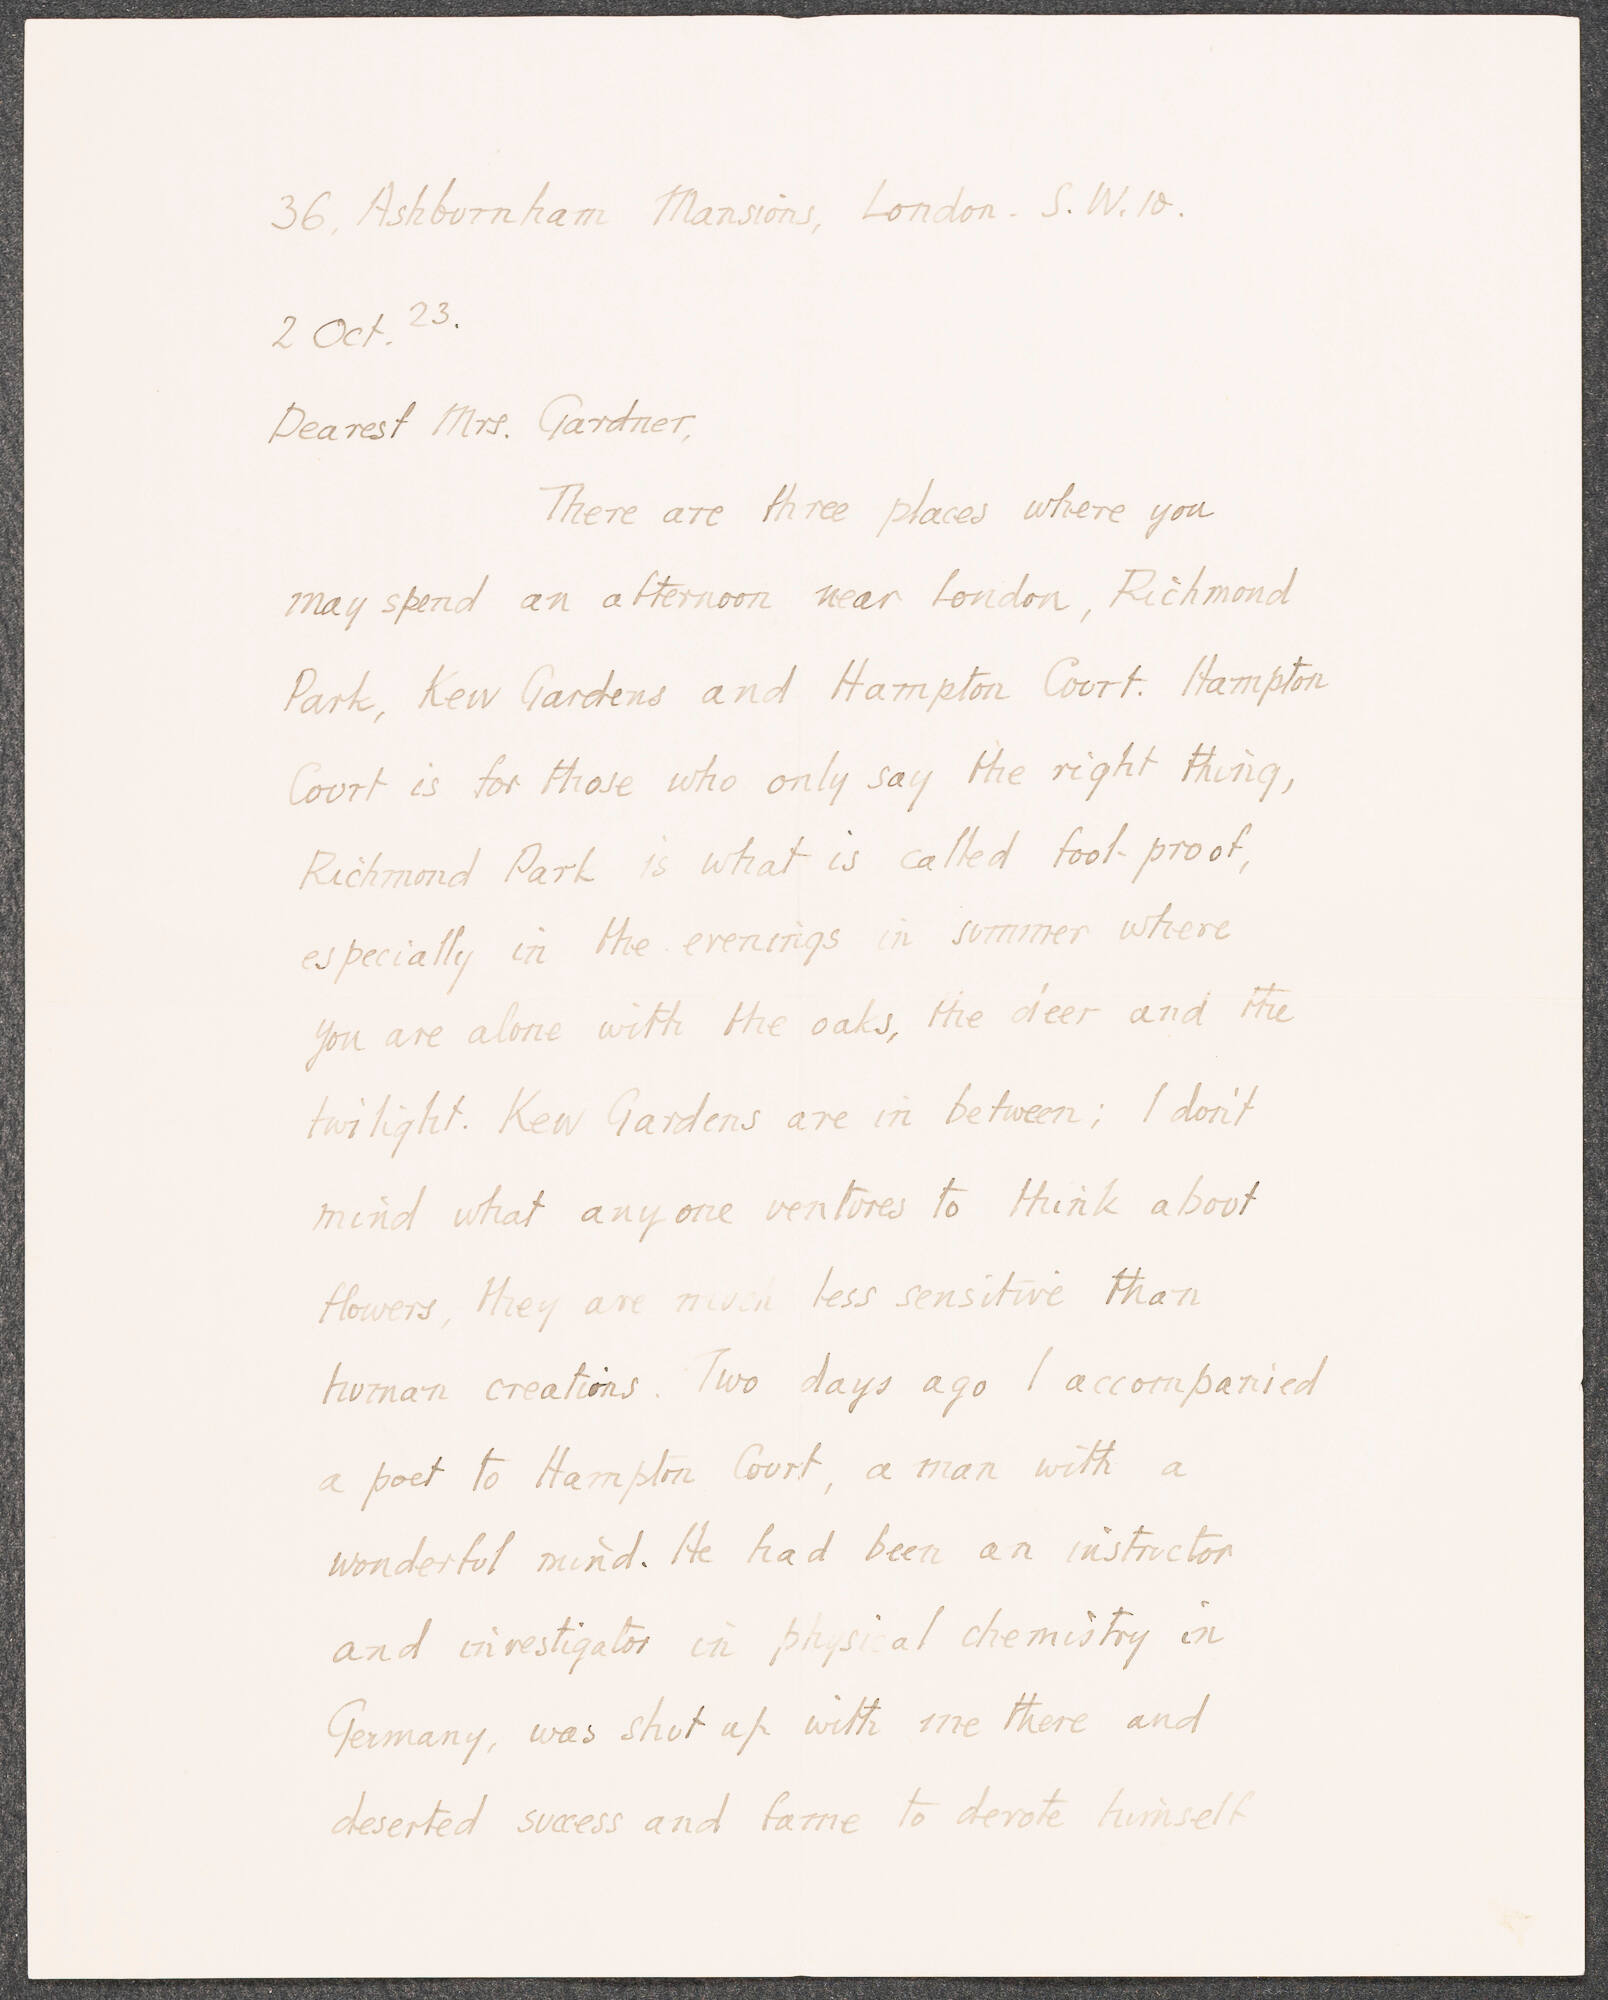 36, Ashburnham Mansions, London. S.W.10.
2 Oct. 23.
Dearest Mrs. Gardner,
There are three places where you
may spend an afternoon near London, Richmond
Park, Kew Gardens and Hampton Court. Hampton
Court is for those who only say the right thing,
Richmond Park is what is called fool-proof,
especially in the evenings in summer where
you are alone with the oaks, the deer and the
twilight. Kew Gardens are in between; I don't
mind what anyone ventures to think about
flowers, they are much less sensitive than
human creations. Two days ago I accompanied
a poet to Hampton Court, a man with a
wonderful mind. He had been an instructor
and investigator in physical chemistry in
Germany, was shut up with me there and
deserted success and fame to devote himself